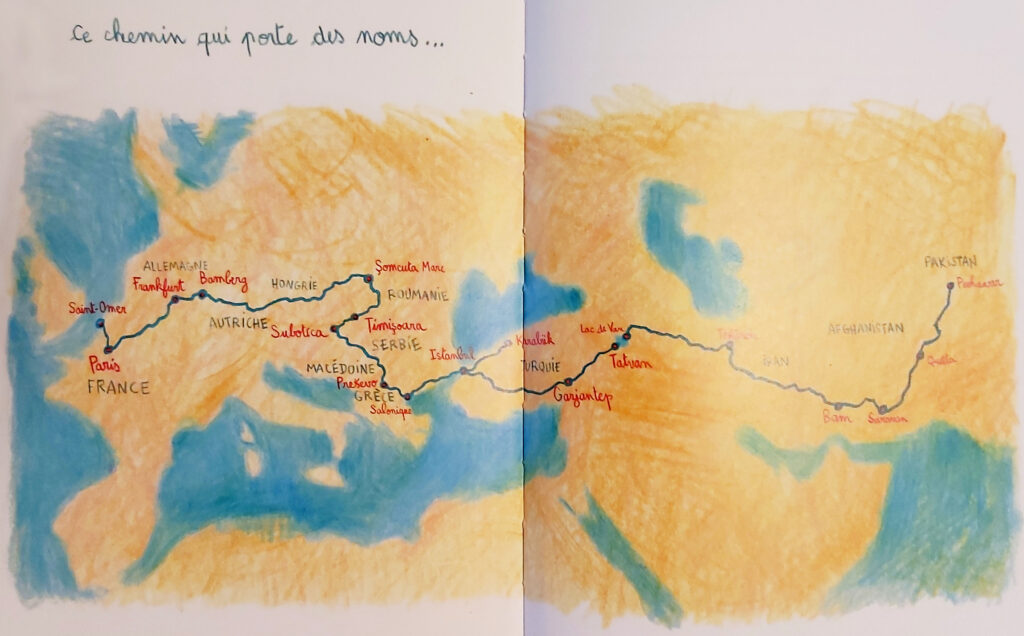 Ce chemin qui porte des noms...
ALLEMAGNE
Frankfurt
Bamberg
HONGRIE
Şomcuta Mare
ROUMANIE
Saint-Omer
AUTRICHE
Subotica
Timişoara
SERBIE
Paris
FRANCE
MACÉDOINE
Preševo
GRÈCE
Salonique
Istanbul
Karabük
TURQUIE
Lac de Van
Tatvan
Gaziantep
IRAN
Bam
Saravan
AFGHANISTAN
Quetta
PAKISTAN
Peshawar